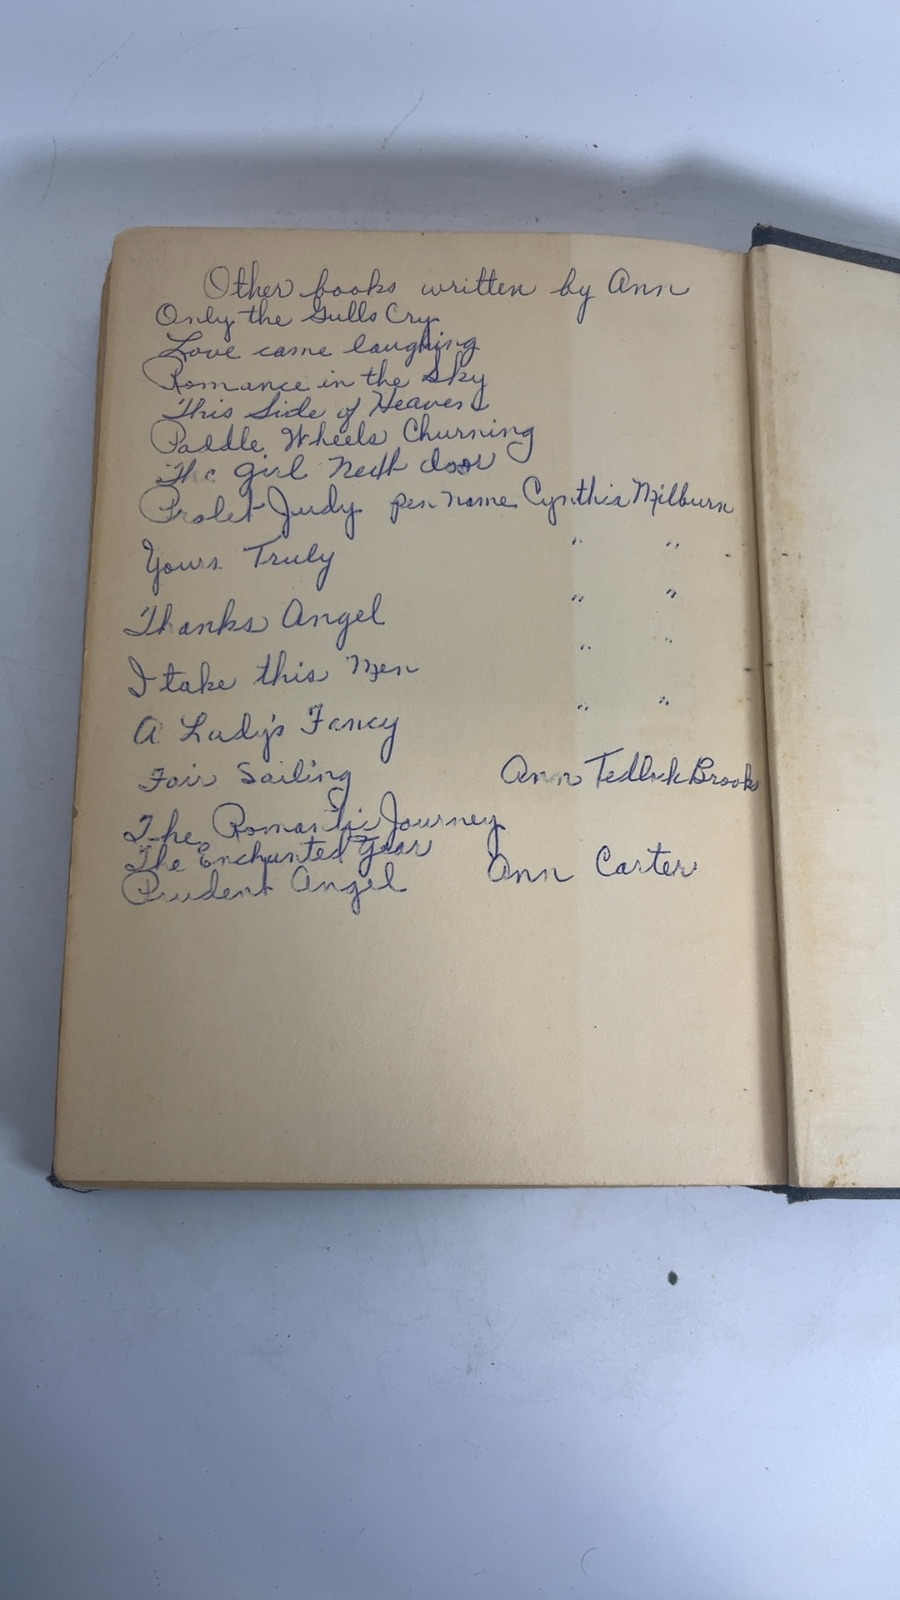 Other books written by Ann
Only the Gulls Cry
Love came laughing
Romance in the Sky
This Side of Heaven
Paddle Wheels Churning
The Girl Next door
Judy pen name Cynthia Milburn
Yours Truly " "
Thanks Angel " "
I take this Man " "
A Lady's Fancy " "
Fair Sailing Ann Tedlock Brooks
The Romantic Journey
The Enchanted Year
Prudent Angel Ann Carter